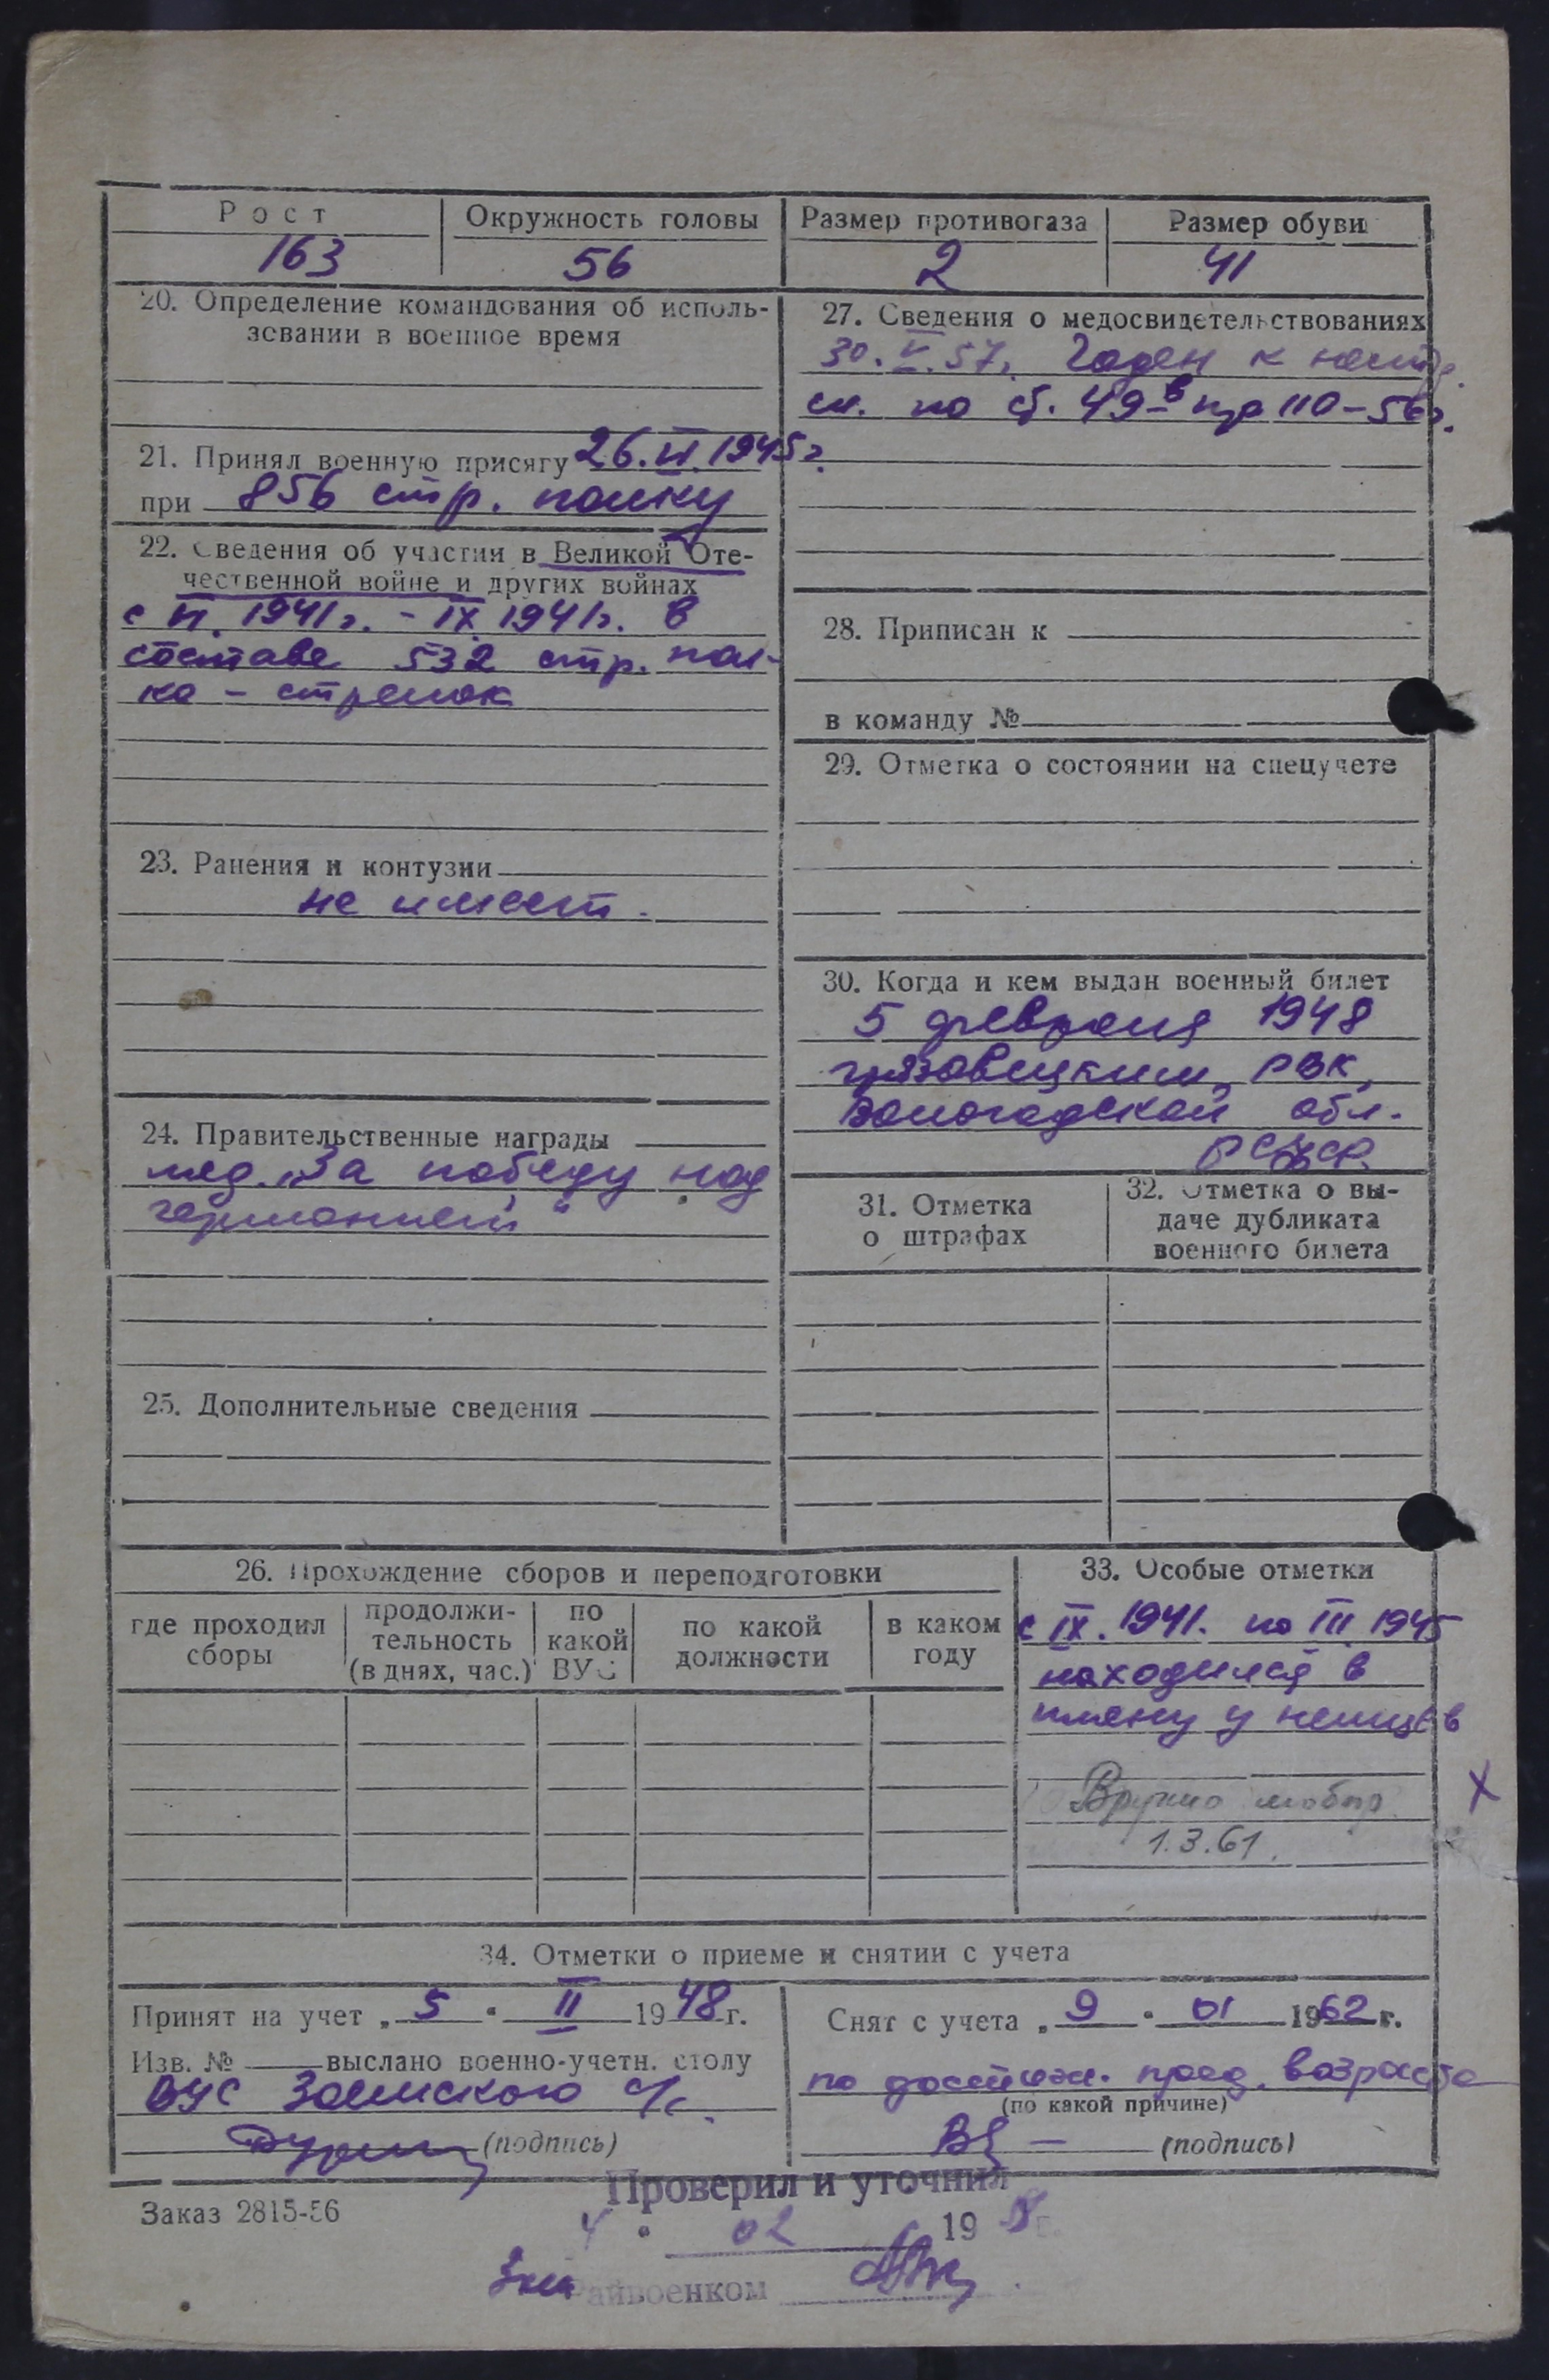 Рост Окружность головы Размер противогаза Размер обуви
163 56 2 41
20. Определение командования об исполь-
зовании в военное время
21. Принял военную присягу 26.VI.1945г.
при 856 стр. полку
22. Сведения об участии в Великой Оте-
чественной войне и других войнах
с VI. 1941г. - IX 1941г. в
составе 532 стр. пол-
ка - стрелок
23. Ранения и контузии
не имеет.
24. Правительственные награды
мед. "За победу над
германией"
25. Дополнительные сведения
27. Сведения о медосвидетельствованиях
30.V.57г. Годен к нестр.
сл. по ст. 49-в пр 110-56г.
28. Приписан к
в команду №
29. Отметка о состоянии на спецучете
30. Когда и кем выдан военный билет
5 февраля 1948
грязовецким РВК,
Вологодской обл.
РСФСР.
31. Отметка
о штрафах
32. Отметка о вы-
даче дубликата
военного билета
26. Прохождение сборов и переподготовки
где проходил
сборы
продолжи-
тельность
(в днях, час.)
по
какой
ВУС
по какой
должности
в каком
году
33. Особые отметки
с IX. 1941. по III 1945
находился в
плену у немцев
1.3.61.
Х
34. Отметки о приеме и снятии с учета
Принят на учет „ 5 " II 1948 г.
Изв. № выслано военно-учетн. столу
ВУС с/с.
(подпись)
Снят с учета „ 9 " 01 1962 г.
по достиж. пред. возраста
(по какой причине)
(подпись)
Заказ 2815-56
Проверил и уточнил
4 " 02 19
Райвоенком